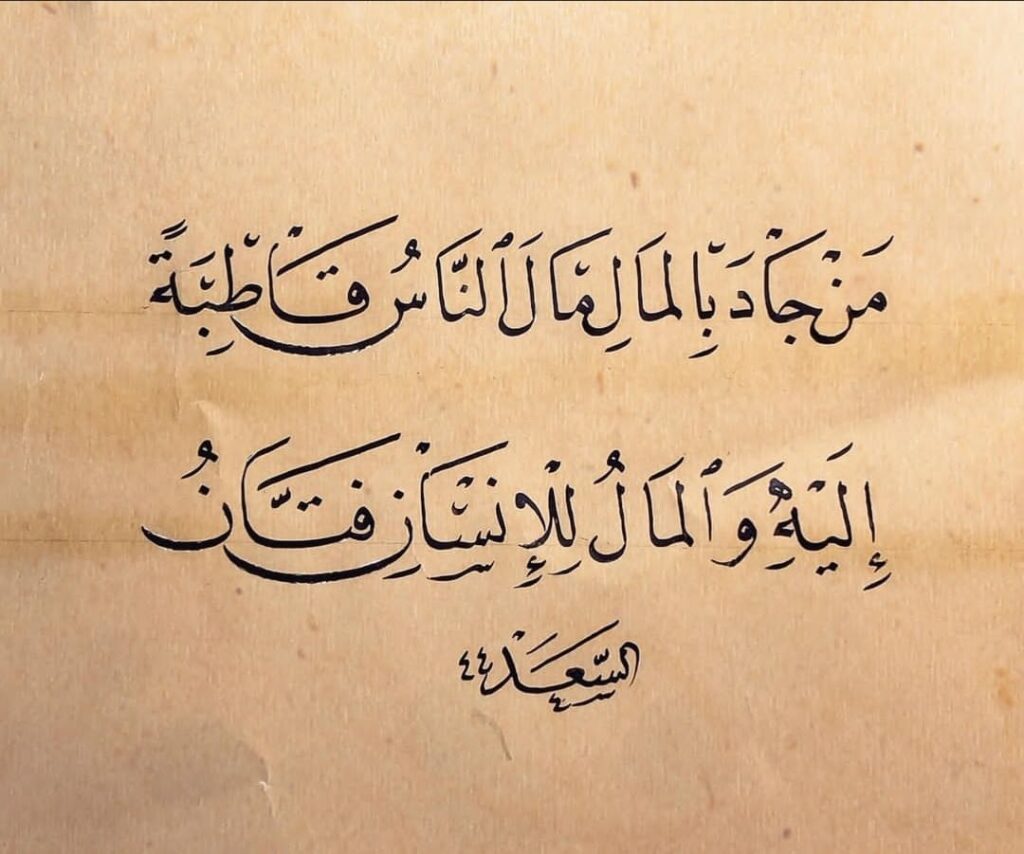 مَنْ جَادَ بِالمَالِ مَالَ ٱلنَّاسُ قَاطِبَةً
إِلَيْهِ وَٱلمَالُ لِلْإِنْسَانِ فَتَّانُ
السَّعَد ٤٤